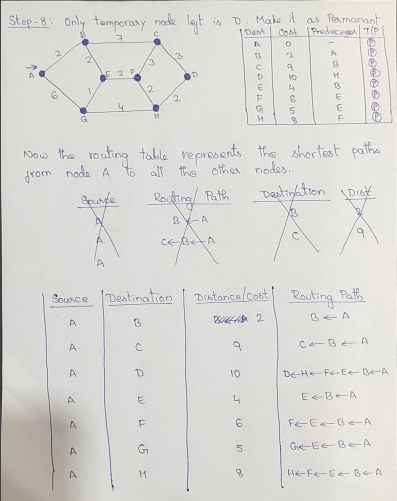 Step-8: Only temporary node left is D. Make it as Permanant
Dest Cost Predecessor T/P
A 0 – P
B 2 A P
C 9 B P
D 10 H P
E 4 B P
F 6 E P
G 5 E P
H 8 F P
B 7 C
2 2 3 3
A E 2 F D
6 1 2 2
G 4 H
Now the routing table represents the shortest paths
from node A to all the other nodes.
Source Routing/Path Destination Dist
A B ← A B 2
A C←B←A C 9
A
Source Destination Distance/cost Routing Path
A B 2 B ← A
A C 9 C ← B ← A
A D 10 D←H←F←E←B←A
A E 4 E←B←A
A F 6 F←E←B←A
A G 5 G←E←B←A
A H 8 H←F←E←B←A